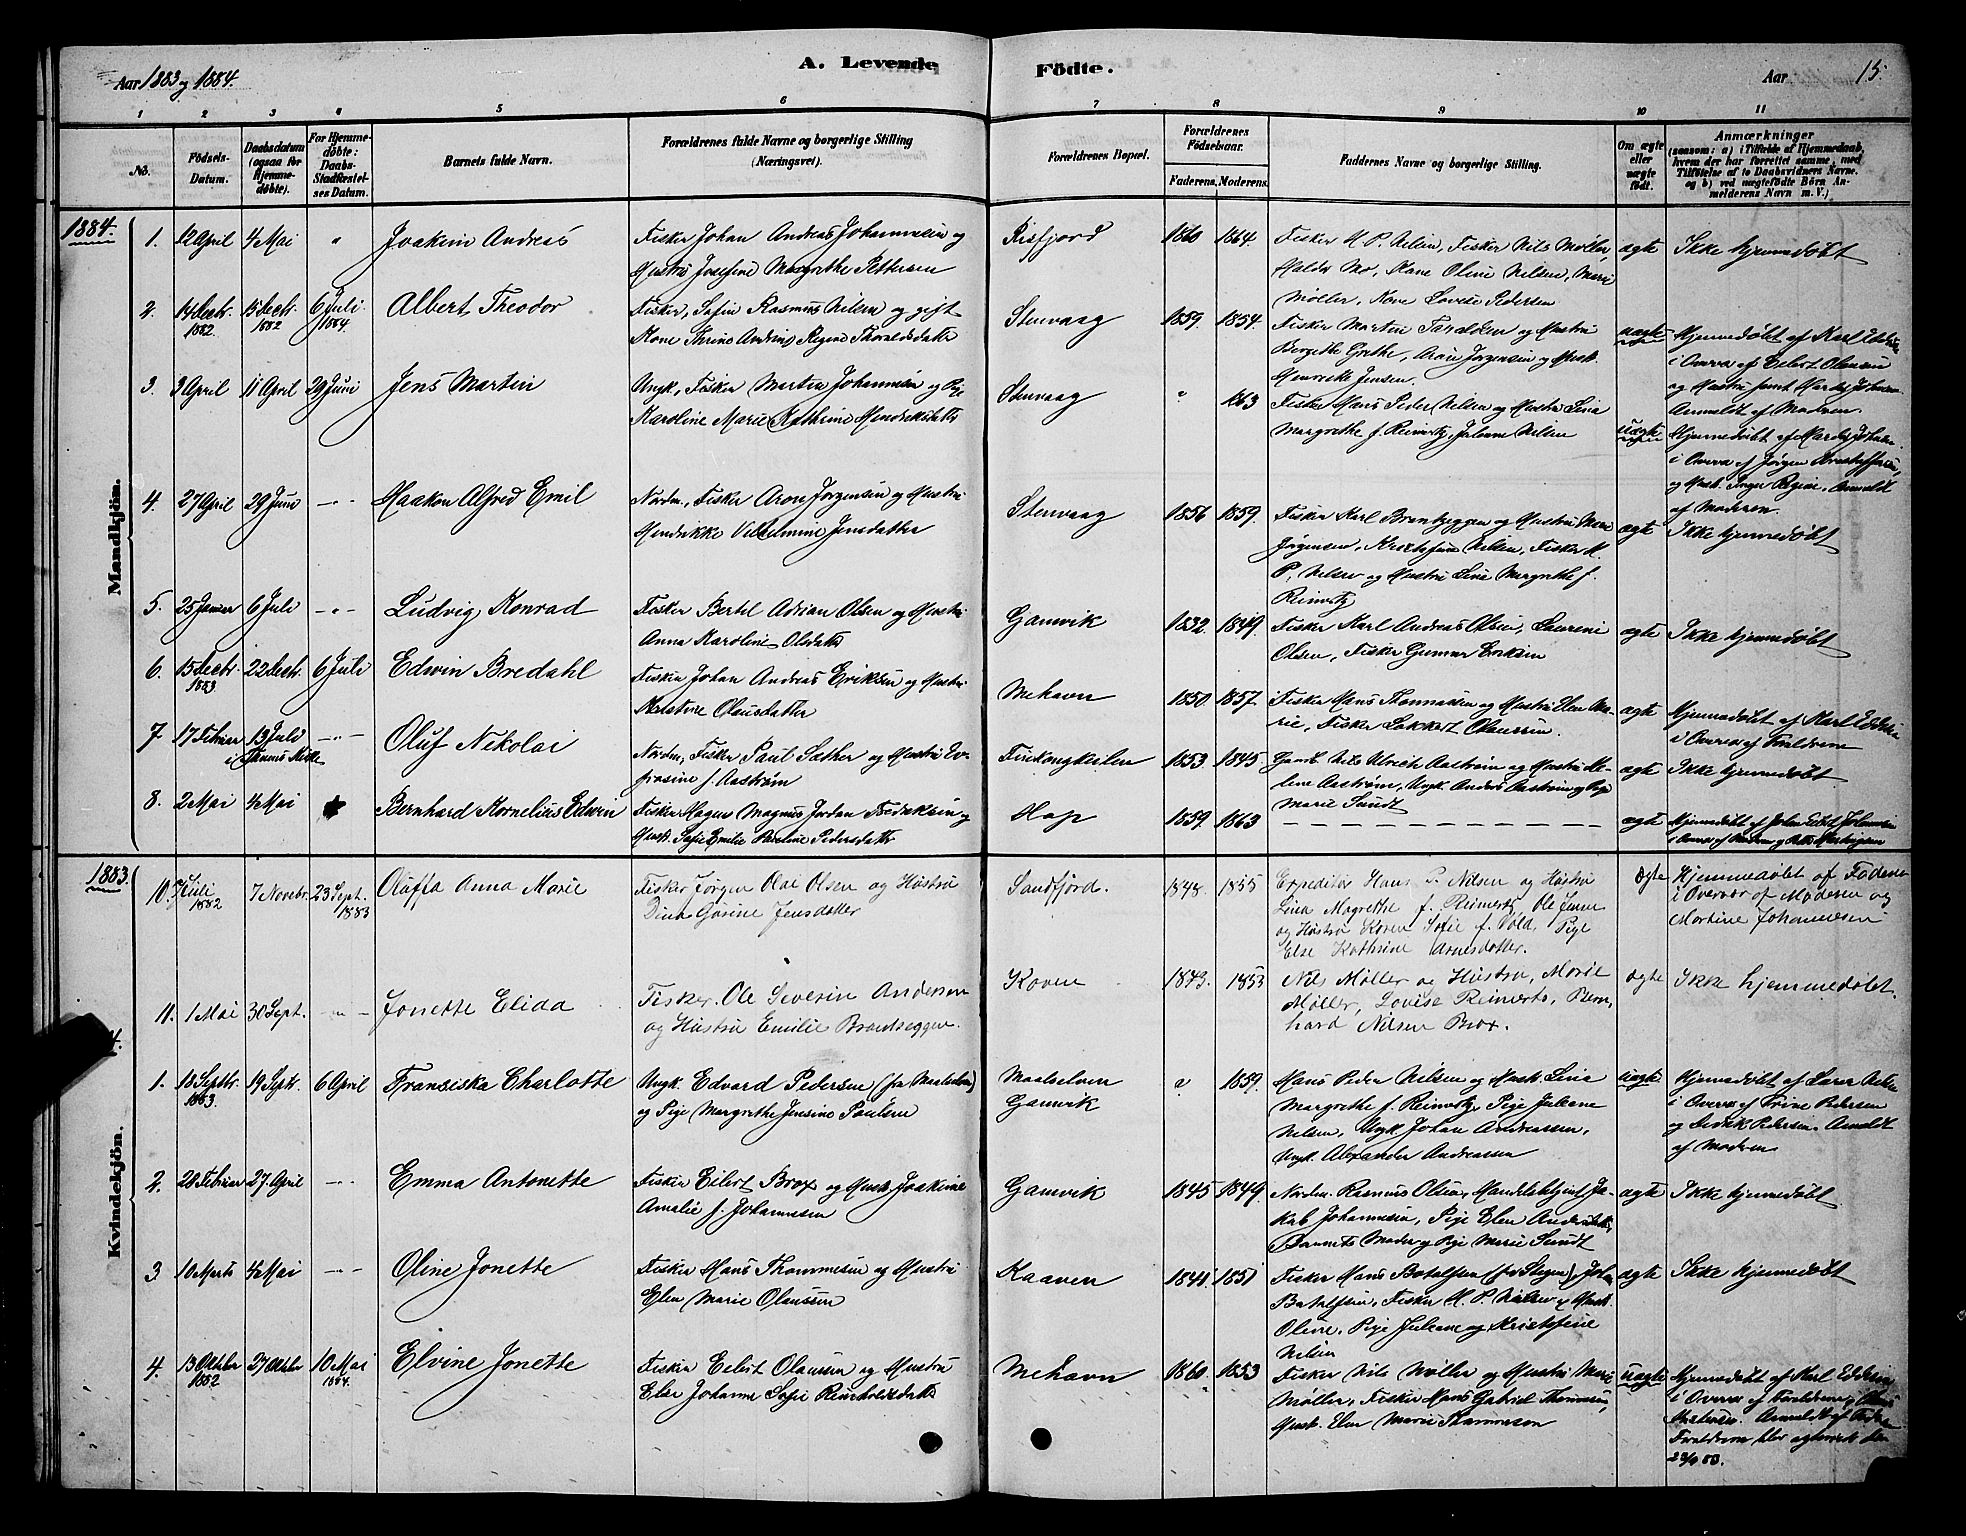 Aar 1883 og 1884.
A. Levende
Födte.
Aar
15.
1 2 3 4 5 6 7 8 9 10 11
No.
Födsels-Datum.
Daabsdatum (ogsaa for Hjemmedöbte).
For Hjemmedöbte: Daabs-Stadfæstelses Datum.
Barnets fulde Navn.
Forældrenes fulde Navne og borgerlige Stilling (Næringsvei).
Forældrenes Bopæl.
Forældrenes Födselsaar.
Faderens. Moderens.
Faddernes Navne og borgerlige Stilling.
Om ægte eller uægte födt.
Anmærkninger
(saasom: a) i Tilfælde af Hjemmedaab, hvem der har forrettet samme, med Tilföielse af to Daabsvidners Navne, og b) ved uægtefödte Börn Anmelderens Navn m. V.)
1884.
Mandkjön.
1. 12 April 4 Mai " Joakim Andreas
Fisker Johan Andreas Johannesen og
Hustru Josefine Margrethe Pettersen
Risfjord 1860 1864
Fisker H. P. Nilsen, Fisker Nils Møller,
Halder Mo, Kone Oline Nilsen, Marie
Møller, Kone Lovise Pedersen
ægte Ikke hjemmedøbt
2. 14 Decbr. 1882. 15 Decbr. 1882 6 Juli 1884. Albert Theodor
Fisker, Rasmus Nilsen og gift
Kone Thrine Andrine Regine Thoraldsdatter
Stenvaag 1859. 1854.
Fisker Martin Taraldsen og Hustru
Bergethe Grethe, Aron Jørgensen og Hust.
Henrikke Jensen.
uægte
Hjemmedøbt af Karl
i Overv. af Eilert Olaussen
og Hustru samt
Anmeldt af Moderen.
3. 3 April 11 April 29 Juni Jens Martin
Ungk. Fisker Martin Johannesen og Pige
Karoline Marie Kathrine Hendriksdatter
Stenvaag " 1863
Fisker Hans Peder Nilsen og Hustru Lina
Margrethe f. Reimertz, Juliane Nilsen
uægte
Hjemmedøbt af
i Overv. af Jørgen
og Hust. Inger Regine. Anmeldt
af Moderen.
4. 27 April 29 Juni —"— Haakon Alfred Emil
Nordm., Fisker Aron Jørgensen og Hustru
Hendrikke Vilhelmine Jensdatter
Stenvaag 1856 1859.
Fisker Karl Brantzeggen og Hustru
Jørgensen, Nilsen, Fisker H.
P. Nilsen og Hustru Lina Margrethe f.
Reimertz
ægte Ikke hjemmedøbt
5. 25 Januar 6 Juli —"— Ludvig Konrad
Fisker Bertel Adrian Olsen og Hustru
Anna Karoline Olsdatter
Gamvik 1832. 1849.
Fisker Karl Andreas Olsen, Laurine
Olsen, Fisker Gunnar Eriksen
ægte Ikke hjemmedøbt
6. 15 Decbr. 1883 22 Decbr. 6 Juli Edwin Bredahl
Fisker Johan Andreas Eriksen og Hustru
Olausdatter
Mehavn 1850. 1857.
Fisker Hans Thommassen og Hustru Elen Marie,
Fisker Olaussen.
ægte
Hjemmedøbt af Karl
i Overv. af Forældrene
7. 17 Februar 13 Juli i Kirke —"— Oluf Nikolai
Nordm., Fisker Paul Sæther og Hustru
f. Aastrøm
Finkongkeilen 1853 1845.
Gamb. Nils Ulrich Aastrøm og Hustru
Aastrøm, Ungk. Anders Aastrøm og Pige
Marie Sundt
ægte Ikke hjemmedøbt
8. 2 Mai 4 Mai Bernhard Kornelius Edwin
Fisker Hagen Magnus Jordan Fredriksen og
Hust. Sofie Emilie Pauline Pedersdatter
Hop 1859. 1863
— — — — — — —
ægte
Hjemmedøbt af Johan Johannesen
i Overv. af
1883.
Kvindekjön.
10. Juli 1882 7 Novebr. 23 Sept. 1883 Oluffa Anna Marie
Fisker Jørgen Olai Olsen og Hustru
Dina Gurine Jensdatter
Sandfjord. 1848. 1855
Expeditør Hans P. Nilsen og Hüstrü
Lina Magrethe f. Reimertz, Ole Jensen
og Hüstrü Karen Sofie f. Vold, Pige
Else Kathrine Arnesdatter.
Ægte
Hjemmedøbt af Faderen
i Overvær af Moderen og
Martine Johannesen
11. 1 Mai 30 Sept. —"— Jonette Elida
Fisker Ole Severin Andersen
og Hüstrü Emilie Brandseggen.
Koven 1843. 1853
Nils Møller og Hüstrü, Marie
Møller, Lovise Reimerts, Bernhard
Nilsen Brox.
ægte Ikke hjemmedøbt.
1. 18 Septbr. 1883. 19 Septr. 6 April Fransiska Charlotte
Ungk. Edvard Pedersen (fra Maalselven)
og Pige Margrethe Jensine Paulsen
Maalselven
Gamvik
" 1859.
Hans Peder Nilsen og Hust. Lina
Margrethe f. Reimertz, Pige Juliane
Nilsen, Ungk. Johan Andreassen,
Ungk. Alexander Andreassen
uægte
Hjemmedøbt af Nilsen
i Overv. af Trine Pedersen
og Pedersen. Anmeldt
af Moderen
2. 28 Februar 27 April —"— Emma Antonette
Fisker Eilert Brox og Hust. Joakime
Amalie f. Johannesen
Gamvik 1845 1849.
Nordm. Rasmus Olsen, Handelsbetjent Jakob
Johannesen, Pige Elen Andersdatter,
Barnets Moder og Pige Marie Sundt
ægte Ikke hjemmedøbt
3 10 Marts 4 Mai —"— Oline Jonette
Fisker Hans Thommesen og Hustru
Elen Marie Olaussen
Kaaven 1844. 1851
Fisker Hans Botolfsen (fra Stegen), Johan
Botolfsen, Fisker H. P. Nilsen og Hust.
Oline, Pige Juliane og Kristofine
Nilsen
ægte Ikke hjemmedøbt
4. 13 Oktbr. 1882 27 Oktbr. 10 Mai 1884. Elvine Jonette
Fisker Eilert Olaussen og Hustru
Elen Johanne Sofie Reinholdsdatter
Mehavn 1860. 1853
Fisker Nils Møller og Hustru Marie
Møller, Fisker Hans Gabriel Thommesen,
Hust. Elen Marie Thommesen
uægte
Hjemmedøbt af Karl
i Overv. af Forældrene,
Anmeldt af
Forældrene blev den